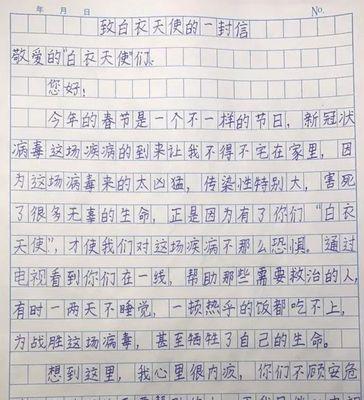 年 月 日 No.
致白衣天使的一封信
敬爱的"白衣天使"们:
您好!
今年的春节是一个不一样的节日,新冠状
病毒这场疾病的到来让我不得不宅在家里,因
为这场病毒来的太凶猛,传染性特别大,害死
了很多无辜的生命,正是因为有了你们"白衣
天使",才使我们对这场疾病不那么恐惧。通过
电视看到你们在一线,帮助那些需要救治的人,
有时一两天不睡觉,一顿热乎的饭都吃不上,
为战胜这场病毒,甚至牺牲了自己的生命。
想到这里,我心里很内疚,你们不顾安危